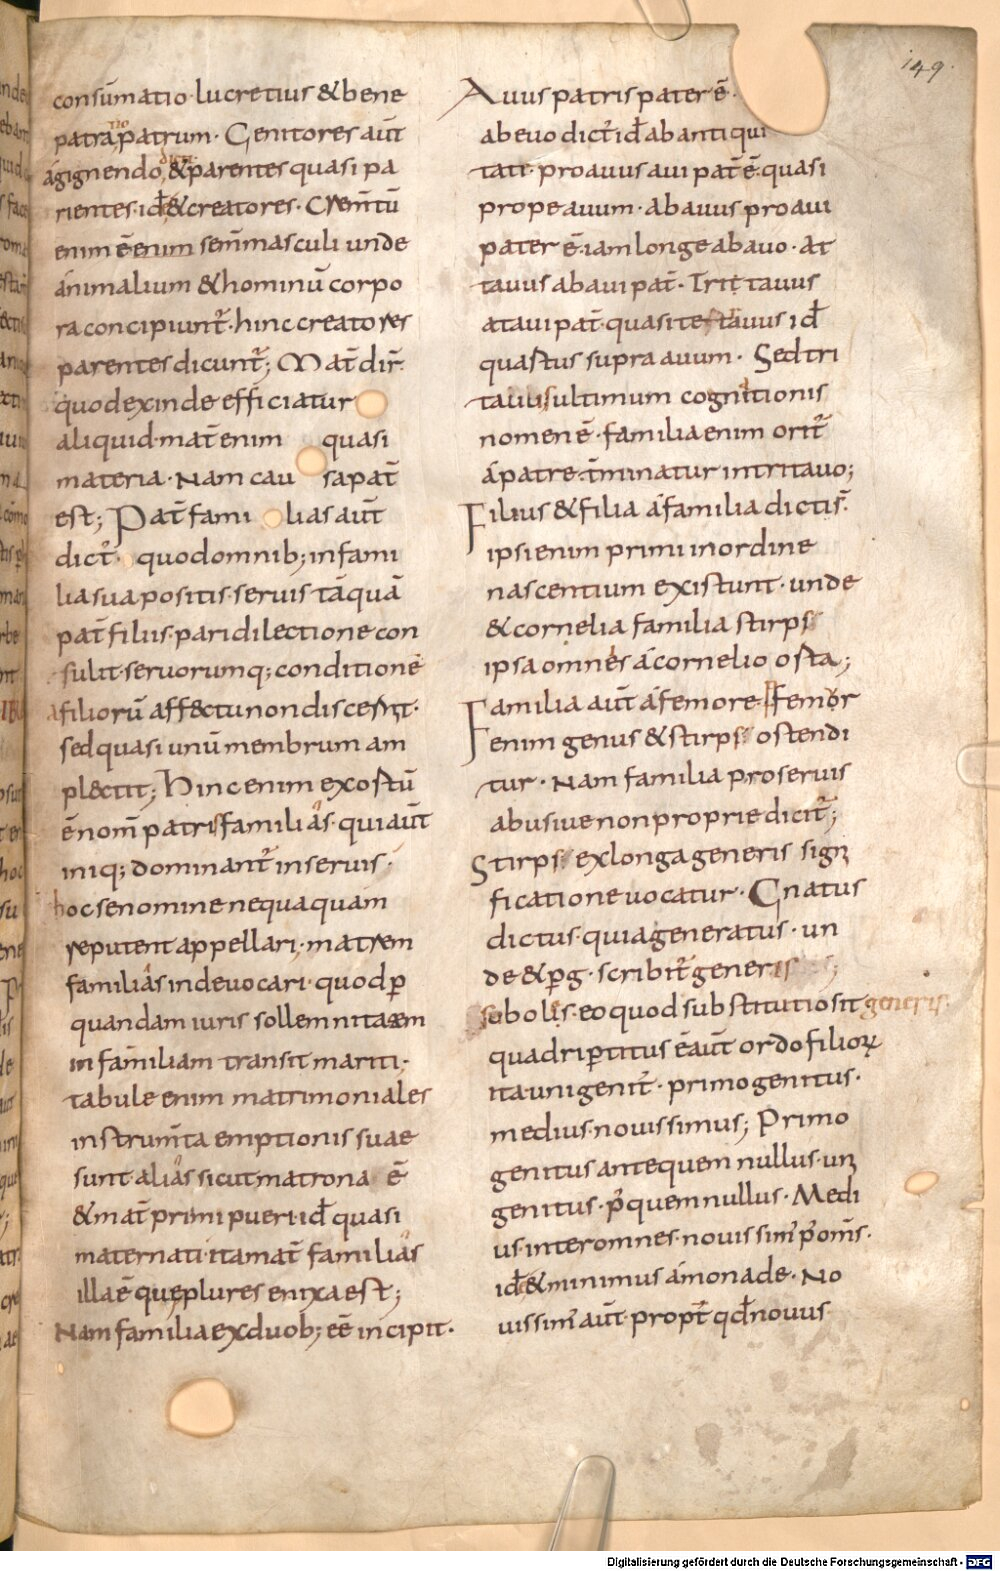 consūmatio· lucretius & bene
patra patrum· Genitores aut̄
ágignendo & parentes quasi pa
rientes· id̄ & creatores· Crem̄tū
enim ē enim sem̄ masculi unde
ánimalium & hominū corpo
ra concipiunt̄· hinc creatores
parentes dicunt̄; Mat̄ dir̄·
quod exinde efficiatur
aliquid· mat̄ enim quasi
materia· Nam cau sa pat̄
est; Pat̄ fami lias aut̄
dict̄· quod omnib; in fami
lia sua positis· seruis tāquā
pat̄ filiis· pari dilectione con
sulit· seruorumq; conditionē
a filiorū aff&ctu non discernt·
sed quasi unū membrum am
pl&ctit; Hinc enim exostū
ē nom̄ patrisfamilias· qui aut̄
iniq; dominant̄ in seruis·
hoc se nomine nequaquam
reputent appellari· matrem
familiás inde uocari· quod p
quandam iuris sollemnitatem
in familiam transit mariti·
tabule enim matrimoniales
instrum̄ta emptionis suae
sunt· aliás sicut matrona ē
& mat̄ primi pueri· id̄ quasi
maternati· ita mat̄ familiás
illa ē que plures enixa est;
Nam familia ex duob; eē incipit·
Auus patris pater ē·
ab euo dict̄· id̄ ab antiqui
tate· proauus aui pat̄ ē· quasi
prope auum· abauus proaui
pater ē· iam longe ab auo· at
tauus abaui pat̄· Trittauus
ataui pat̄· quasi te tauus id̄
quastus supra auum· Sed tri
tauus ultimum cognitionis
nomen ē· familia enim orit̄
á patre· t̄minatur in tritauo;
Filius & filia á familia dicti s̄·
ipsi enim primi in ordine
nascentium existunt· unde
& cornelia familia stirps
ipsa omnes á cornelio osta;
Familia aut̄ á femore· Femor
enim genus & stirps ostendi
tur· Nam familia pro seruis
abusiue non proprie dicit̄;
Stirps ex longa generis sign
ficatione uocatur· Gnatus
dictus· quia generatus· un
de & p g· scribit̄ generis
subolis· eo quod substitutio sit generis
quadrip̄titus ē aut̄ ordo filioꝝ
ita· unigenit̄· primogenitus·
medius· nouissimus; Primo
genitus ante quem nullus· uni
genitus· p̄ quem nullus· Medi
us· inter omnes· nouissim̄ p̄ om̄s·
id̄ & minimus á monade· No
uissim̄ aut̄ propt̄ qd̄ nouus
149·
Digitalisierung gefördert durch die Deutsche Forschungsgemeinschaft - DFG